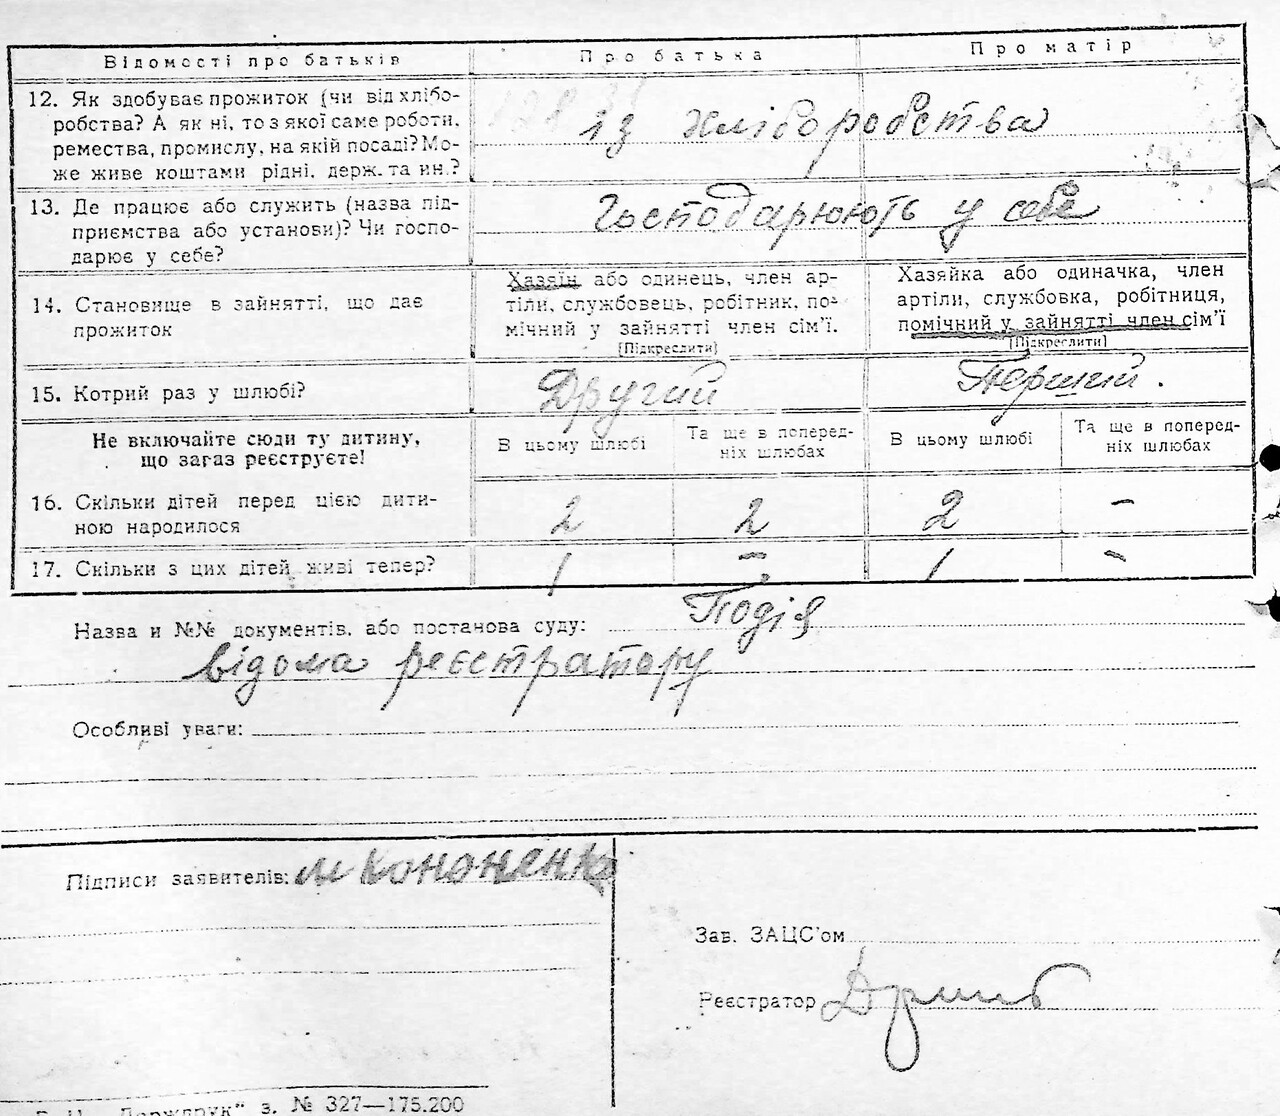 Відомості про батьків Про батька Про матір
12. Як здобуває прожиток (чи від хлібо-
робства? А як ні, то з якої саме роботи,
ремества, промислу, на якій посаді? Мо-
же живе коштами рідні, держ. та ин.?
із хліборобства
13. Де працює або служить (назва під-
приємства або установи)? Чи госпо-
дарює у себе?
Господарюють у себе
14. Становище в зайнятті, що дає
прожиток
Хазяїн або одинець, член ар-
тіли, службовець, робітник, по-
мічний у зайнятті член сім'ї.
[Підкреслити]
Хазяйка або одиначка, член
артіли, службовка, робітниця,
помічний у зайнятті член сім'ї
[Підкреслити]
15. Котрий раз у шлюбі? Другий Перший.
Не включайте сюди ту дитину,
що зараз реєструєте!
В цьому шлюбі
Та ще в поперед-
ніх шлюбах
В цьому шлюбі
Та ще в поперед-
ніх шлюбах
16. Скільки дітей перед цією дити-
ною народилося
2 2 2 –
17. Скільки з цих дітей живі тепер? 1 – 1 –
Назва и №№ документів, або постанова суду: Подія
відома реєстратору
Особливі уваги:
Підписи заявителів: М Кононенко
Зав. ЗАЦС'ом
Реєстратор
Держдрук" з. № 327—175.200